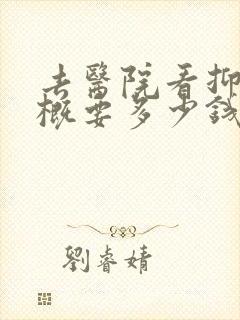 去醫院看抑
概要多少錢
劉睿婧